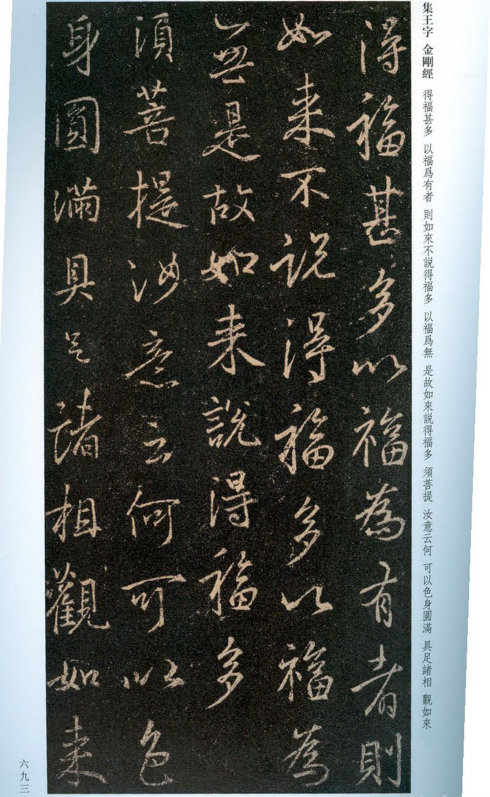 集王字 金剛經 得福甚多 以福爲有者 則如來不說得福多 以福爲無 是故如來說得福多 須菩提 汝意云何 可以色身圓滿 具足諸相 觀如來
得福甚多以福為有者則
如来不說得福多以福為
無是故如来說得福多
須菩提汝意云何可以色
身圓滿具足諸相觀如来
六九三